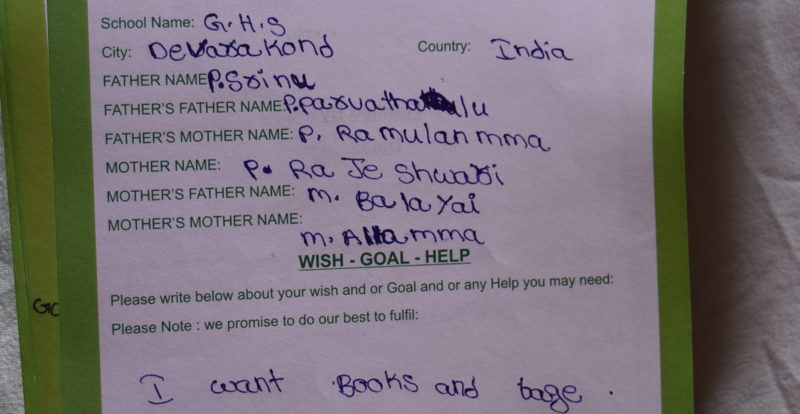 School Name: G.H.S
City: Devarakond Country: India
FATHER NAME P.Srinu
FATHER'S FATHER NAME: P.parvatha lu
FATHER'S MOTHER NAME: P. Ramulan mma
MOTHER NAME: P. Ra Je Shwari
MOTHER'S FATHER NAME: m. Balayai
MOTHER'S MOTHER NAME:
m. Allamma
WISH - GOAL - HELP
Please write below about your wish and or Goal and or any Help you may need:
Please Note : we promise to do our best to fulfil:
GC
I want Books and bage .